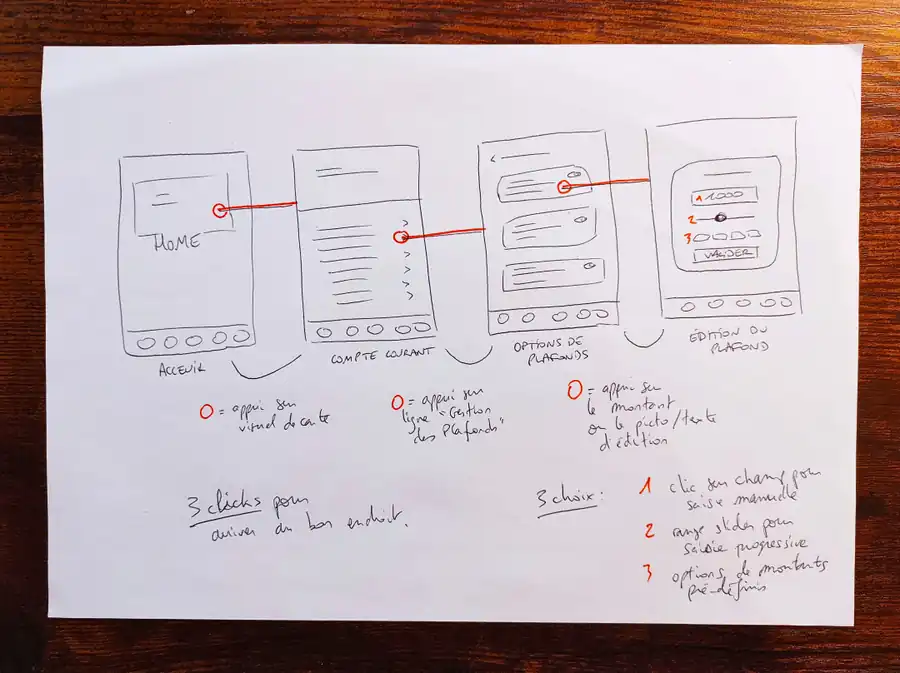 HOME
1 1000
2
3
VALIDER
ACCEUIL
COMPTE COURANT
OPTIONS DE
PLAFONDS
ÉDITION DU
PLAFOND
O = appui sur
visuel de carte
O = appui sur
ligne "Gestion
des Plafonds"
O = appui sur
le montant
ou le picto/texte
d'édition
3 clicks pour
arriver au bon endroit.
3 choix:
1 clic sur champ pour
saisie manuelle
2 range slider pour
saisie progressive
3 options de montants
pré-définis